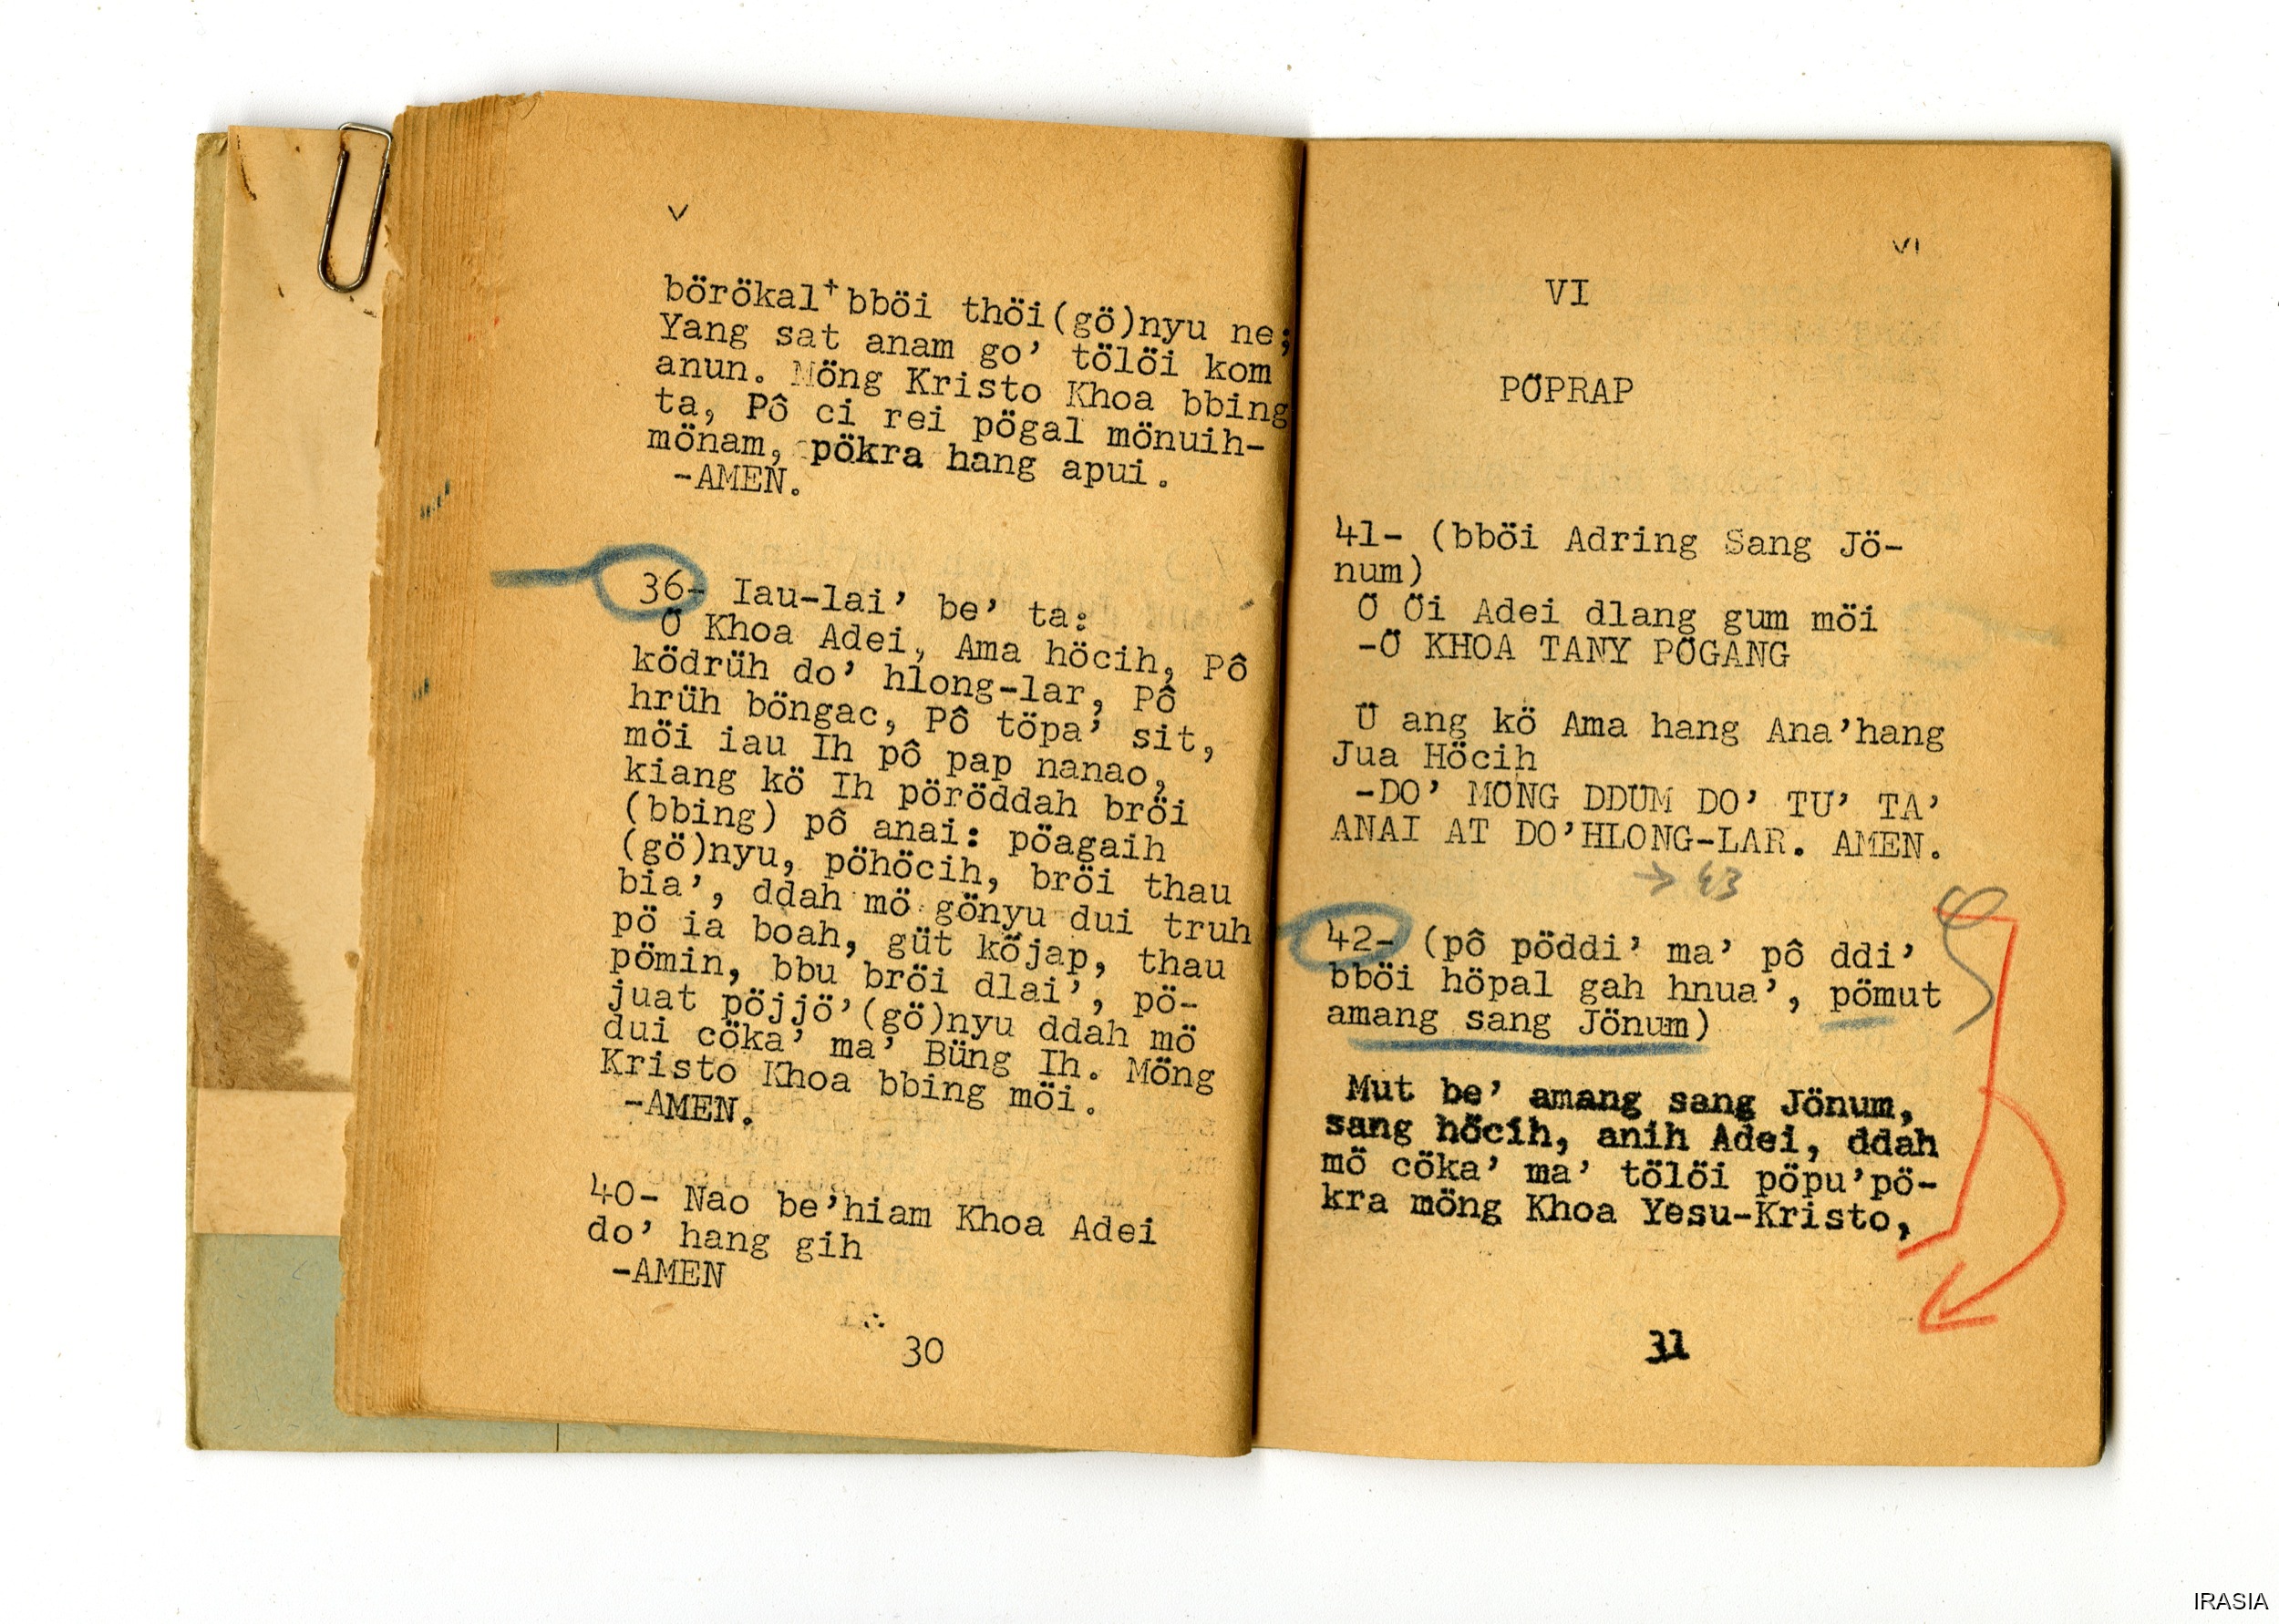 V
börökal+bböi thöi(gö)nyu ne;
Yang sat anam go’ tölöi kom
anun. Möng Kristo Khoa bbing
ta, Pô ci rei pögal mönuih-
mönam, pökra hang apui.
-AMEN.
36- Iau-lai’ be’ ta:
Ö Khoa Adei, Ama höcih, Pô
ködrüh do’ hlong-lar, Pô
hrüh böngac, Pô töpa’ sit,
möi iau Ih pô pap nanao,
kiang kö Ih pöröddah bröi
(bbing) pô anai: pöagaih
(gö)nyu, pöhöcih, bröi thau
bia’, ddah mö gönyu dui truh
pö ia boah, güt köjap, thau
pömin, bbu bröi dlai’, pö-
juat pöjjö’(gö)nyu ddah mö
dui cöka’ ma’ Büng Ih. Möng
Kristo Khoa bbing möi.
-AMEN.
40- Nao be’hiam Khoa Adei
do’ hang gih
-AMEN
30
VI
VI
PÖPRAP
41- (bböi Adring Sang Jö-
num)
Ö Öi Adei dlang gum möi
-Ö KHOA TANY PÖGANG
Ü ang kö Ama hang Ana’hang
Jua Höcih
-DO’ MÖNG DDUM DO’ TU’ TA’
ANAI AT DO’HLONG-LAR. AMEN.
→ 43
42- (pô pöddi’ ma’ pô ddi’
bböi höpal gah hnua’, pömut
amang sang Jönum)
Mut be’ amang sang Jönum,
sang höcih, anih Adei, ddah
mö cöka’ ma’ tölöi pöpu’pö-
kra möng Khoa Yesu-Kristo,
31
IRASIA